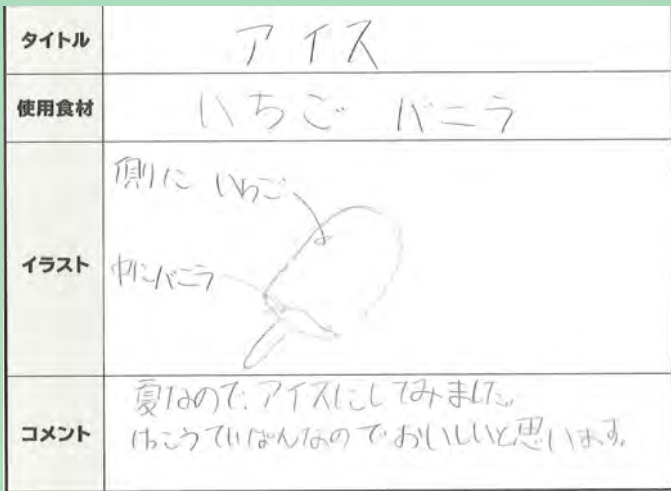 タイトル
アイス
使用食材
いちご バニラ
イラスト
側に いちご
中にバニラ
コメント
夏なので、アイスにしてみました。
けっこうていばんなのでおいしいと思います。